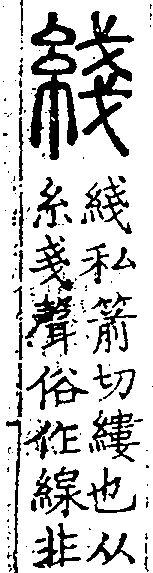 綫
綫私箭切縷也从
糸戔聲俗作線非